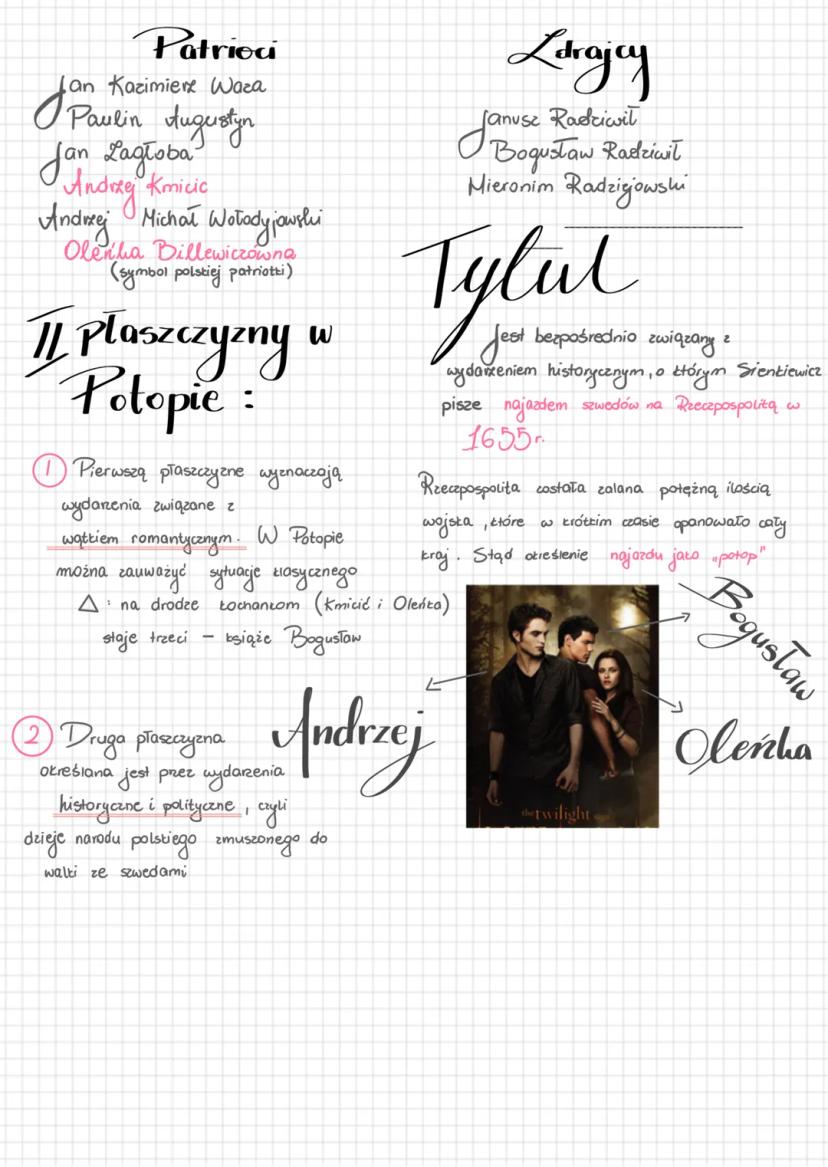 Patrioci
Jan Kazimierz Waza
Paulin Augustyn
Jan Zagłoba
Andrzej Kmicic
Andrzej Michał Wołodyjowski
Oleńka Billewiczówna
(symbol polskiej patriotki)
II płaszczyzny w
Potopie :
1 Pierwszą płaszczyzne wyznaczają
wydarzenia związane z
wątkiem romantycznym. W Potopie
można zauważyć sytuacje klasycznego
△ : na drodze kochankom (Kmicić i Oleńka)
staje trzeci – książe Bogusław
Andrzej
2 Druga płaszczyzna
określana jest przez wydarzenia
historyczne i polityczne, czyli
dzieje narodu polskiego zmuszonego do
walki ze szwedami
Zdrajcy
Janusz Radziwił
Bogusław Radziwił
Hieronim Radziejowski
Tytuł
Jest bezpośrednio związany z
wydarzeniem historycznym, o którym Sienkiewicz
pisze najazdem szwedów na Rzeczpospolitą w
1655r.
Rzeczpospolita została zalana potężną ilością
wojska, które w krótkim czasie opanowało cały
kraj. Stąd określenie najazdu jako „potop"
Bogusław
Oleńka
the twilight saga